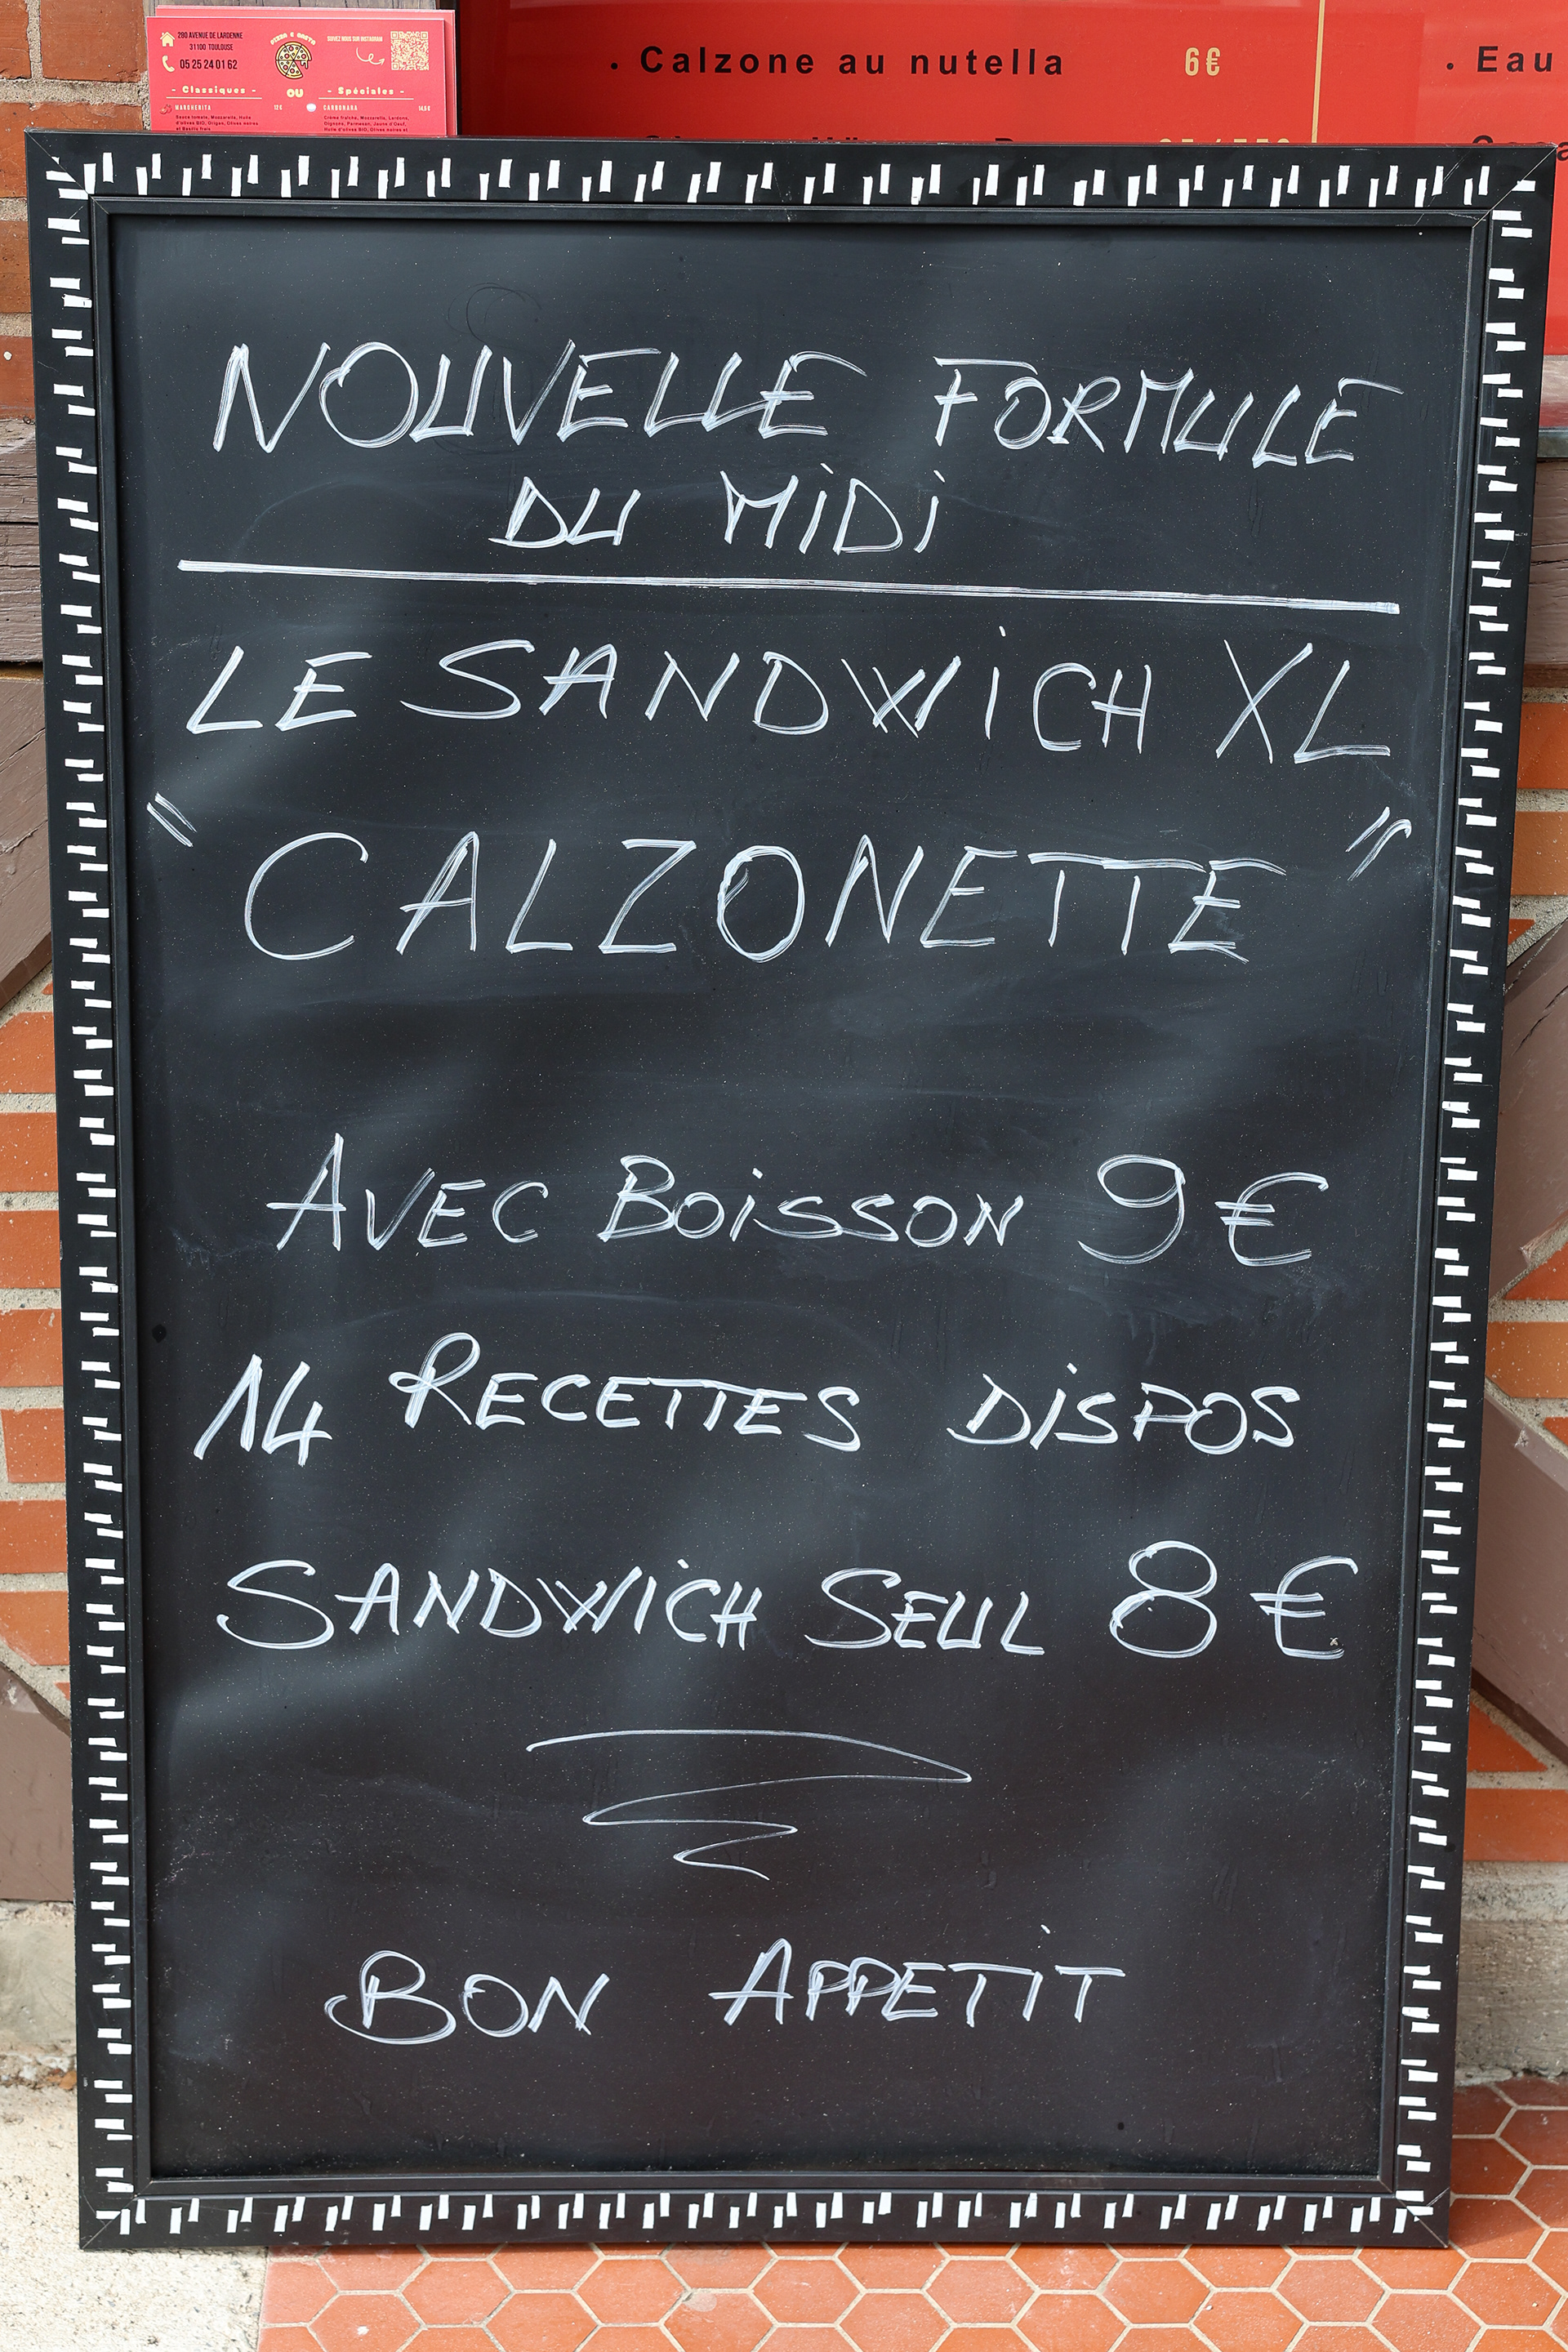 280 AVENUE DE LARDENNE
31100 TOULOUSE
05 25 24 01 62
PIZZA E BASTA
SUIVEZ NOUS SUR INSTAGRAM
- Classiques -
OU
- Spéciales -
MARGHERITA 12€
Sauce tomate, Mozzarella, Huile
d'olives BIO, Origan, Olives noires
et Basilic frais
CARBONARA
Crème fraîche, Mozzarella, Lardons,
Oignons, Parmesan, Jaune d'Oeuf,
Huile d'olives BIO, Olives noires et
• Calzone au nutella 6€
• Eau
NOUVELLE FORMULE
DU MiDi
LE SANDWiCH XL
"CALZONETTE"
AVEC BOiSSON 9€
14 RECETTES DiSPOS
SANDWiCH SEUL 8€
BON APPETiT